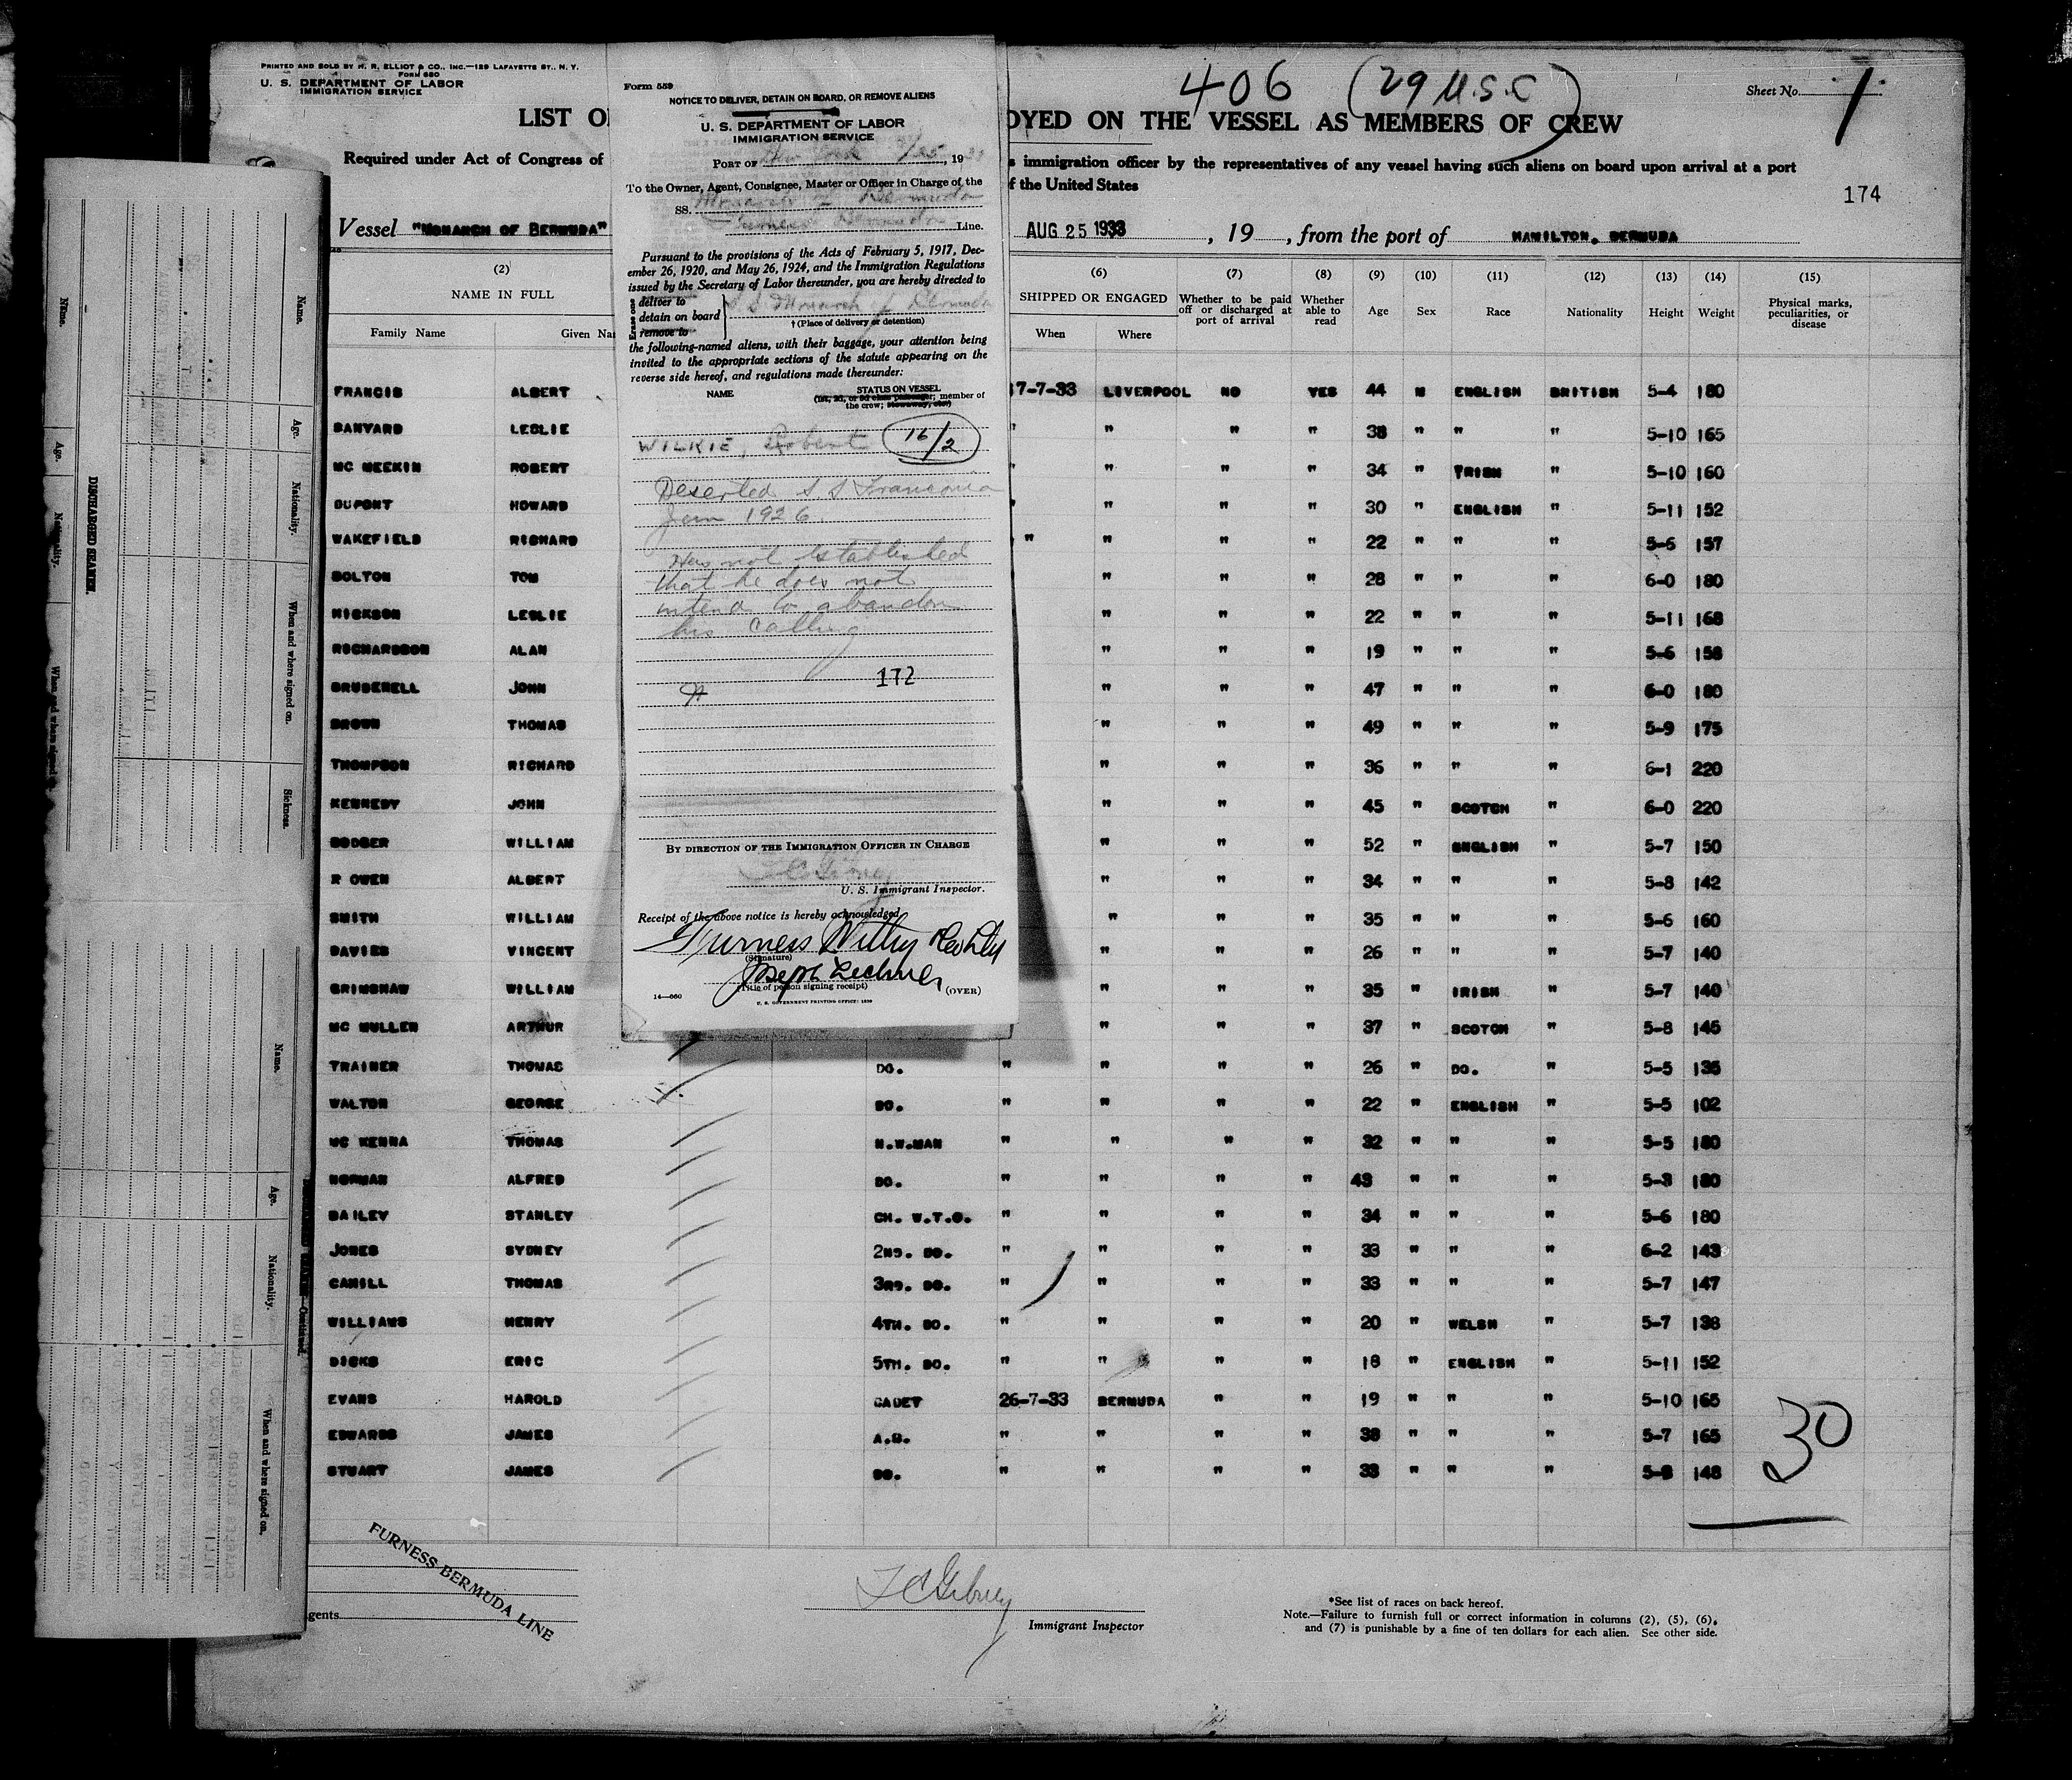 PRINTED AND SOLD BY H. R. ELLIOT & CO., INC.—129 LAFAYETTE ST., N. Y.
FORM 680
U. S. DEPARTMENT OF LABOR
IMMIGRATION SERVICE
406 (29 U.S.C)
Sheet No. 1
LIST O
OYED ON THE VESSEL AS MEMBERS OF CREW
Required under Act of Congress of
s immigration officer by the representatives of any vessel having such aliens on board upon arrival at a port
f the United States
174
Vessel "MONARCH OF BERMUDA"
AUG 25 1933, 19 , from the port of HAMILTON, BERMUDA
(2) (6) (7) (8) (9) (10) (11) (12) (13) (14) (15)
NAME IN FULL SHIPPED OR ENGAGED Whether to be paid off or discharged at port of arrival Whether able to read Age Sex Race Nationality Height Weight Physical marks, peculiarities, or disease
Family Name Given Na When Where
FRANCIS ALBERT 17-7-33 LIVERPOOL NO YES 44 M ENGLISH BRITISH 5-4 180
BANYARD LESLIE " " " " 38 " " " 5-10 165
MC MEEKIN ROBERT " " " " 34 " IRISH " 5-10 160
DUPONT HOWARD " " " " 30 " ENGLISH " 5-11 152
WAKEFIELD RICHARD " " " " 22 " " " 5-6 157
BOLTON TOM " " " 28 " " " 6-0 180
HICKSON LESLIE " " " 22 " " " 5-11 168
RICHARDSON ALAN " " " 19 " " " 5-6 158
BRUDENELL JOHN " " " 47 " " " 6-0 180
BROWN THOMAS " " " 49 " " " 5-9 175
THOMPSON RICHARD " " " 36 " " " 6-1 220
KENNEDY JOHN " " " 45 " SCOTCH " 6-0 220
BODGER WILLIAM " " " 52 " ENGLISH " 5-7 150
R OWEN ALBERT " " " 34 " " " 5-8 142
SMITH WILLIAM " " " 35 " " " 5-6 160
DAVIES VINCENT " " " 26 " " " 5-7 140
GRIMSHAW WILLIAM " " " 35 " IRISH " 5-7 140
MC MULLEN ARTHUR " " " 37 " SCOTCH " 5-8 145
TRAINER THOMAS DO. " " " " 26 " DO. " 5-5 135
WALTON GEORGE DO. " " " " 22 " ENGLISH " 5-5 102
MC KENNA THOMAS N.W.MAN " " " " 32 " " " 5-5 180
NORMAN ALFRED DO. " " " " 43 " " " 5-3 180
BAILEY STANLEY CH. W.T.O. " " " " 34 " " " 5-6 180
JONES SYDNEY 2ND. DO. " " " " 33 " " " 6-2 143
CAHILL THOMAS 3RD. DO. " " " " 33 " " " 5-7 147
WILLIAMS HENRY 4TH. DO. " " " " 20 " WELSH " 5-7 138
DICKS ERIC 5TH. DO. " " " " 18 " ENGLISH " 5-11 152
EVANS HAROLD CADET 26-7-33 BERMUDA " " 19 " " " 5-10 165
EDWARDS JAMES A.B. " " " " 38 " " " 5-7 165
STUART JAMES DO. " " " " 33 " " " 5-8 148
30
FURNESS BERMUDA LINE
gents
Immigrant Inspector
*See list of races on back hereof.
Note.—Failure to furnish full or correct information in columns (2), (5), (6),
and (7) is punishable by a fine of ten dollars for each alien. See other side.
Form 559
NOTICE TO DELIVER, DETAIN ON BOARD, OR REMOVE ALIENS
U. S. DEPARTMENT OF LABOR
IMMIGRATION SERVICE
PORT OF New York 8/25, 1933
To the Owner, Agent, Consignee, Master or Officer in Charge of the
SS. Monarch of Bermuda
Furness Bermuda Line.
Pursuant to the provisions of the Acts of February 5, 1917, Dec-
ember 26, 1920, and May 26, 1924, and the Immigration Regulations
issued by the Secretary of Labor thereunder, you are hereby directed to
Erase one
deliver to
detain on board S S Monarch of Bermuda
remove to
† (Place of delivery or detention)
the following-named aliens, with their baggage, your attention being
invited to the appropriate sections of the statute appearing on the
reverse side hereof, and regulations made thereunder:
NAME STATUS ON VESSEL
(1st, 2d, or 3d class passenger; member of
the crew; stowaway, etc.)
WILKIE, Robert 16/2
Deserted S S Franconia
Jan 1926.
Has not established
that he does not
intend to abandon
his calling
172
BY DIRECTION OF THE IMMIGRATION OFFICER IN CHARGE
U. S. Immigrant Inspector.
Receipt of the above notice is hereby acknowledged
Furness Withy & Co Ltd
(Signature)
Joseph Lechner
(Title of person signing receipt)
14—660
U. S. GOVERNMENT PRINTING OFFICE: 1930
(OVER)
DISCHARGED SEAMEN.
Name.
Age.
Nationality.
When and where signed on.
Sickness.
Name.
Age.
Nationality.
When and where signed on.